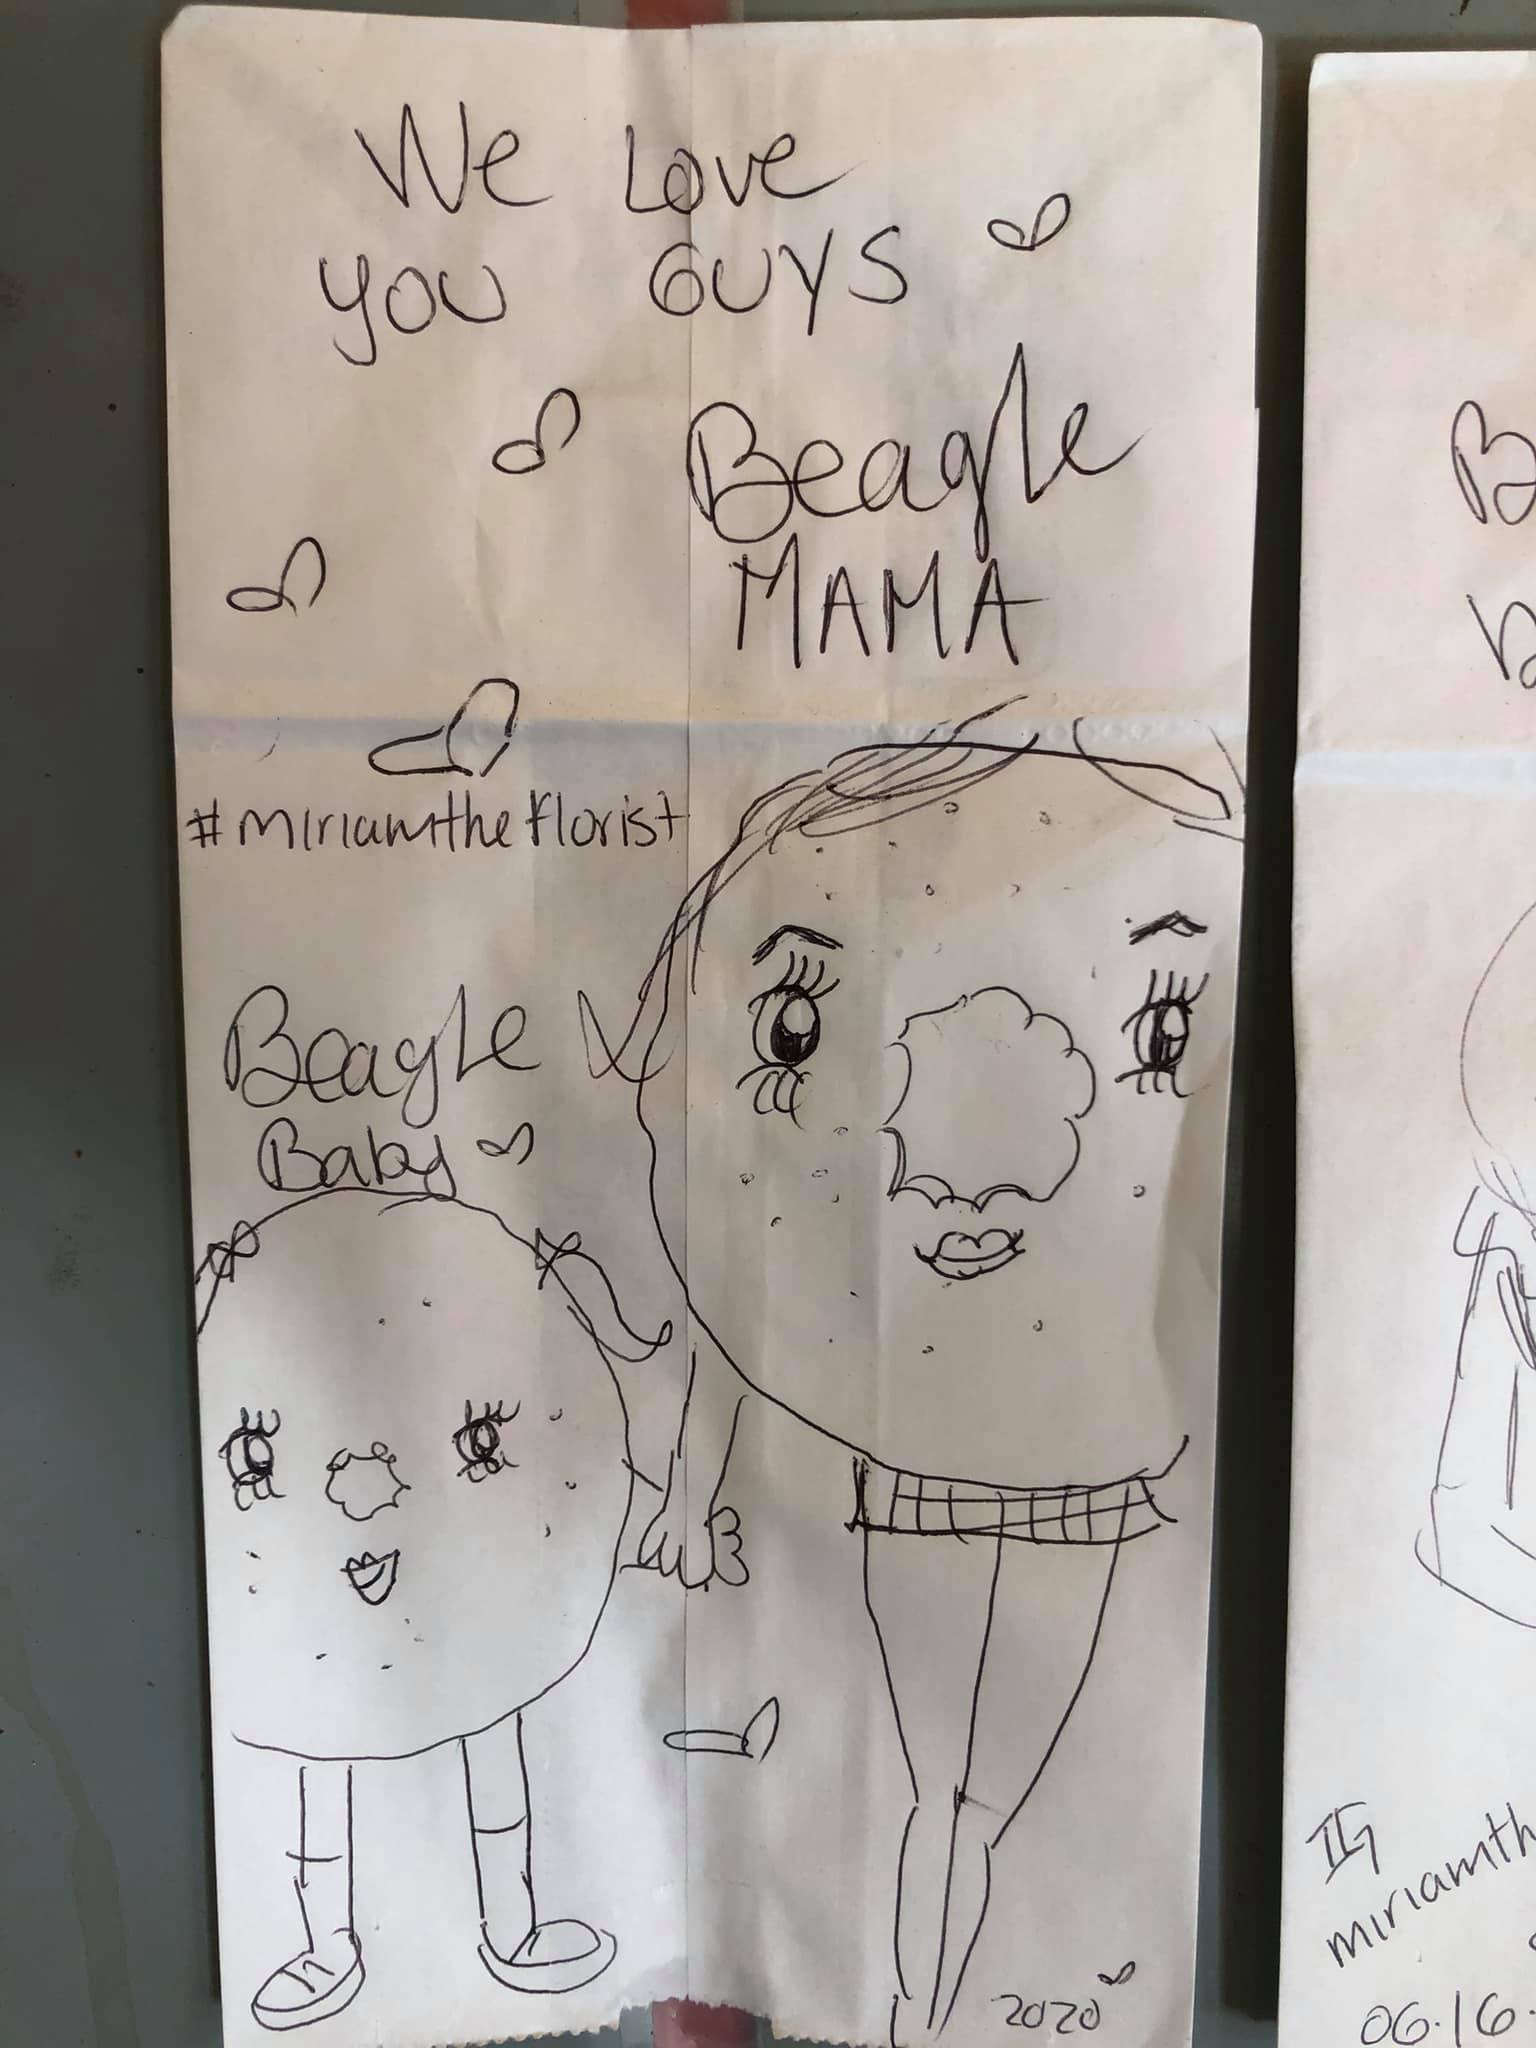 We Love
you GUYS
Beagle
MAMA
#miriamtheflorist
Beagle
Baby
2020
B
b
IG
miriamth
06.16.